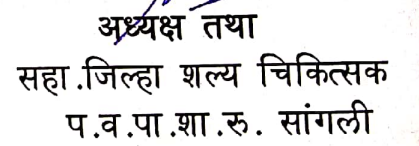 अध्यक्ष तथा
सहा.जिल्हा शल्य चिकित्सक
प.व.पा.शा.रु. सांगली